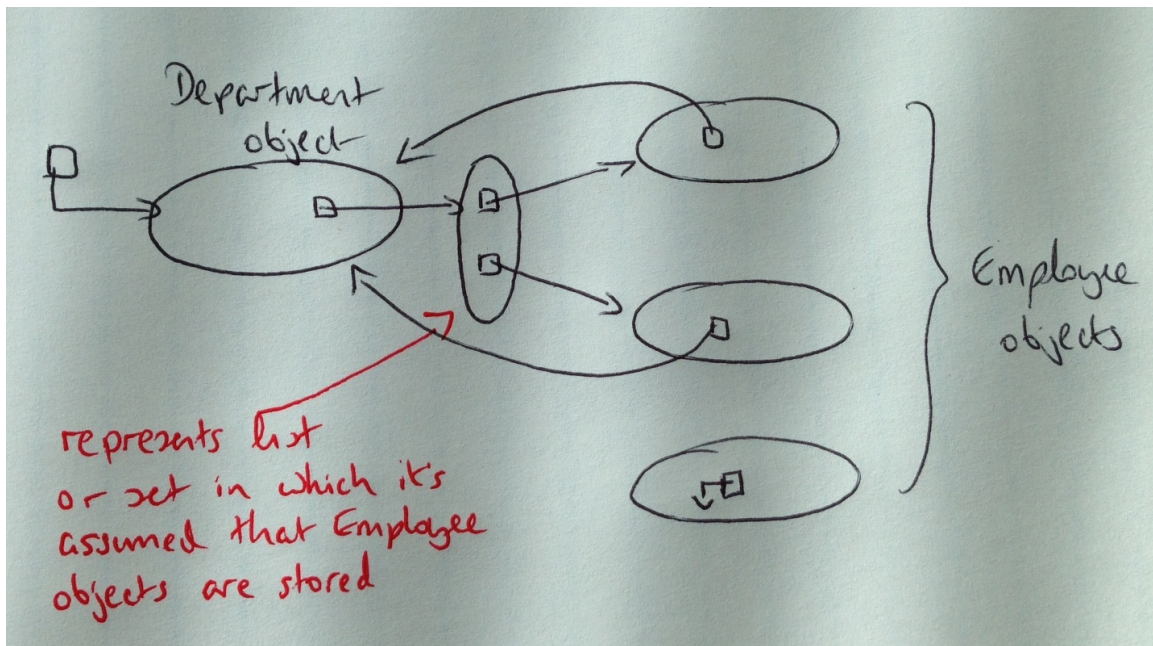 Department
object
Employee
objects
represents list
or set in which it's
assumed that Employee
objects are stored